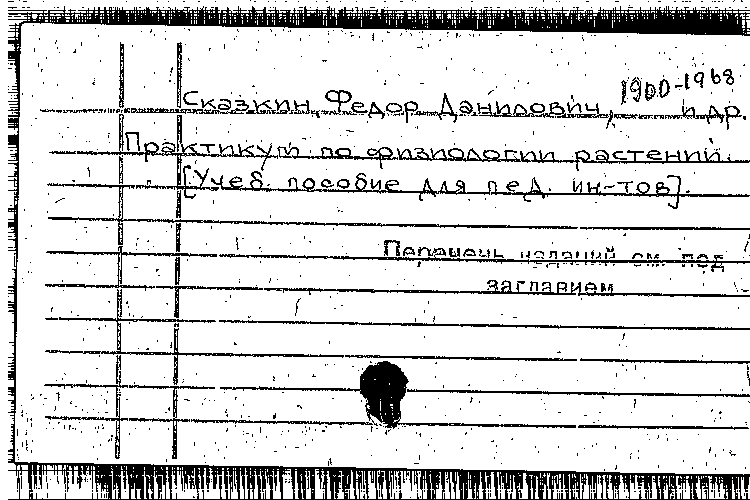 Сказкин, Федор Данилович, 1900-1968 и др.
Практикум по физиологии растений.
[Учеб. пособие для пед. ин-тов].
Перечень изданий см. под
заглавием